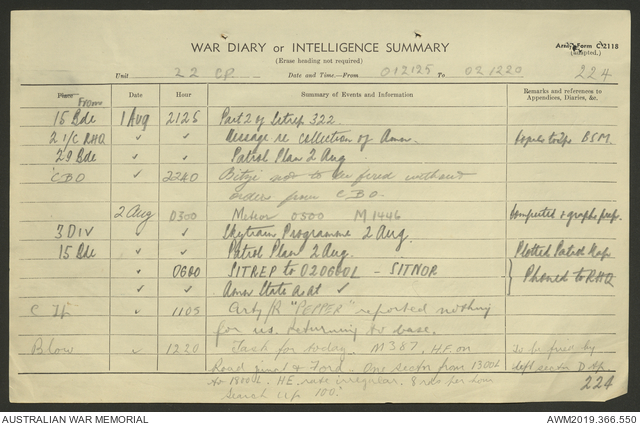 Army Form C 2118
(adapted.)
WAR DIARY or INTELLIGENCE SUMMARY
(Erase heading not required)
Unit 22 CP. Date and Time.—From 012125 To 021220 224
Place From Date Hour Summary of Events and Information Remarks and references to Appendices, Diaries, &c.
15 Bde 1 Aug 2125 Part 2 of Sitrep 322.
2 I/C RHQ ✓ ✓ Message re collection of Amn. BSM.
29 Bde ✓ ✓ Patrol Plan 2 Aug
CBO ✓ 2240 not to be fired without
orders from CBO.
2 Aug 0300 Meteor 0300 M1446 Computed & graphs prep.
3 DIV ✓ Skytrain Programme 2 Aug.
15 Bde ✓ ✓ Patrol Plan 2 Aug. Plotted Patrol Map
✓ 0600 SITREP to 020600L - SITNOR } Phoned to RHQ
✓ ✓ Amn State as at ✓
C Tp ✓ 1105 Arty/R "PEPPER" reported nothing
for us. Returning to base.
Blow ✓ 1220 Task for today. M387, H.F. on To be fired by
Road junct & Ford. One sectn from 1300L left sectn D Tp.
to 1800L. HE. rate irregular. 8 rds per hour 224
Search Up 150°
AUSTRALIAN WAR MEMORIAL AWM2019.366.550